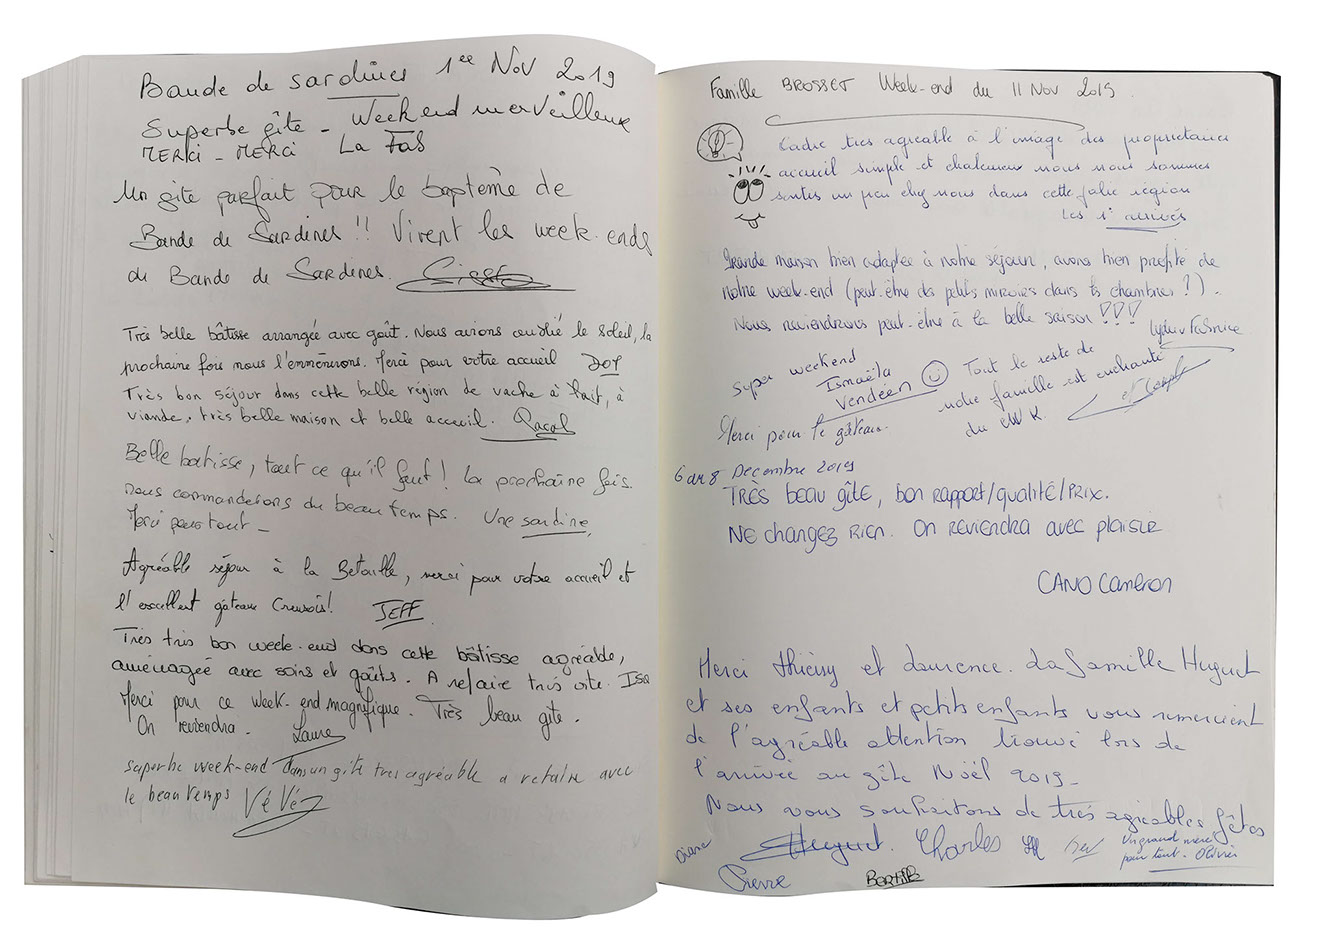 Bande de sardines 1ee Nov 2019
Superbe gîte - Week end merveilleux
MERCI - MERCI La Fab
Un gîte parfait pour le baptême de
Bande de Sardines !! Vivent les week-ends
de Bande de Sardines.
Très belle bâtisse arrangée avec goût. Nous avions oublié le soleil, la
prochaine fois nous l'emmènerons. Merci pour votre accueil DOM
Très bon séjour dans cette belle région de vache à lait, à
viande, très belle maison et belle accueil. Pascal
Belle batisse, tout ce qu'il faut ! La prochaine fois.
nous commanderons du beau temps. Une sardine,
Merci pour tout -
Agréable séjour à la Betaille, merci pour votre accueil et
l'excellent gâteau Creusois! JEFF
Très très bon week-end dans cette bâtisse agréable,
aménagée avec soins et goûts. A refaire très vite. Isa
Merci pour ce week-end magnifique. Très beau gîte.
On reviendra. Laure
superbe week-end dans un gîte tres agréable a refaire avec
le beau temps VéVé
Famille BROSSET Week-end du 11 Nov 2019.
Cadre tres agreable à l'image des propriétaires
accueil simple et chaleureux nous nous sommes
sentis un peu chez nous dans cette jolie région
Les 1er arrivés
Grande maison bien adaptée à notre séjour, avons bien profité de
notre week-end (peut-être des petits miroirs dans les chambres ?).
Nous reviendrons peut-être à la belle saison !!!
Lydie Fabrice
Super weekend
Ismaëla
Vendéen
Tout le reste de
notre famille est enchanté
du WK.
Merci pour le gâteau.
6 au 8 Decembre 2019
TRÈS beau gîte, bon rapport/qualité/prix.
NE changez RIEN. On reviendra avec plaisir
CANO Cameron
Merci Thierry et Laurence. La famille Huguet
et ses enfants et petits enfants vous remercient
de l'agréable attention trouvé lors de
l'arrivée au gîte Noël 2019-
Nous vous souhaitons de très agréables fêtes
Diane Huguet. Charles
Un grand merci
pour tout - Olivier
Pierre